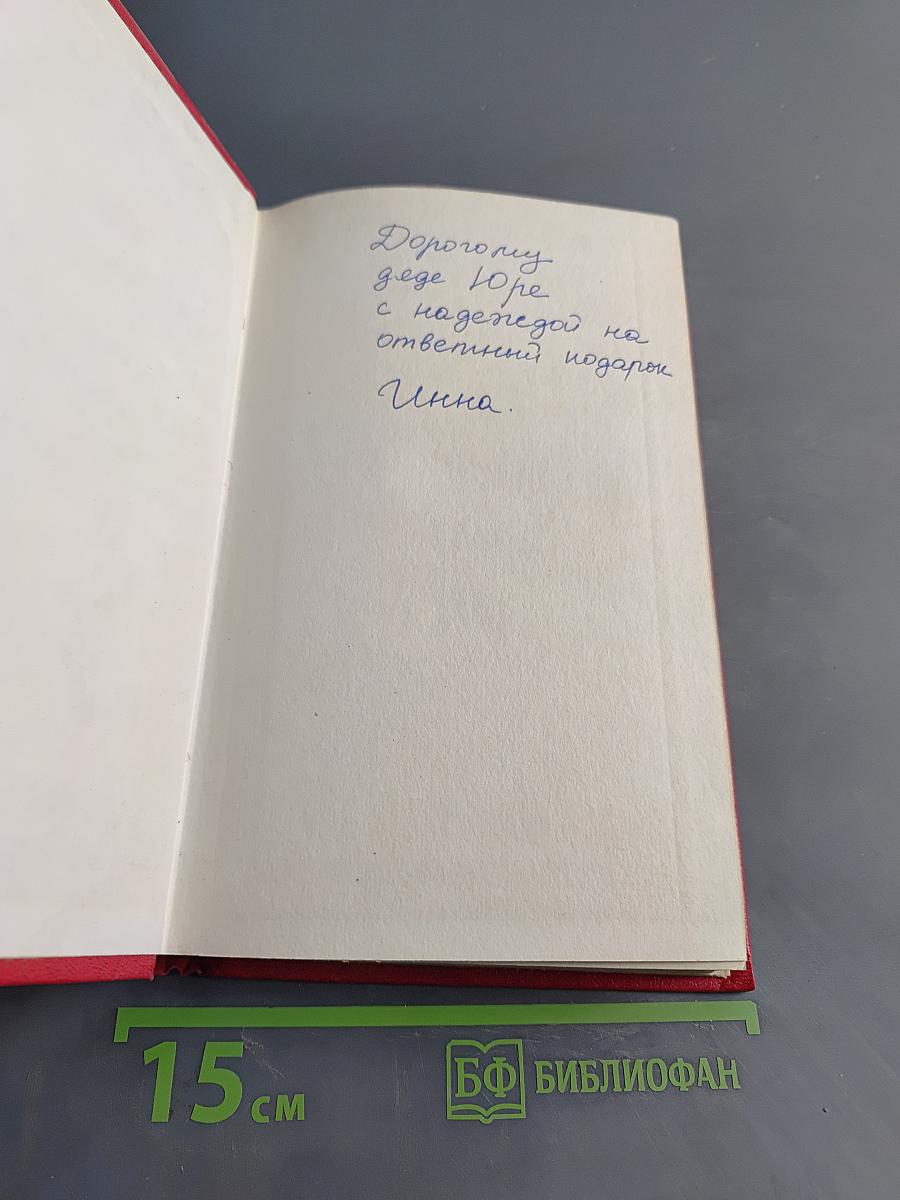 Дорогому
дяде Юре
с надеждой на
ответный подарок
Инна.
15 см
БФ БИБЛИОФАН